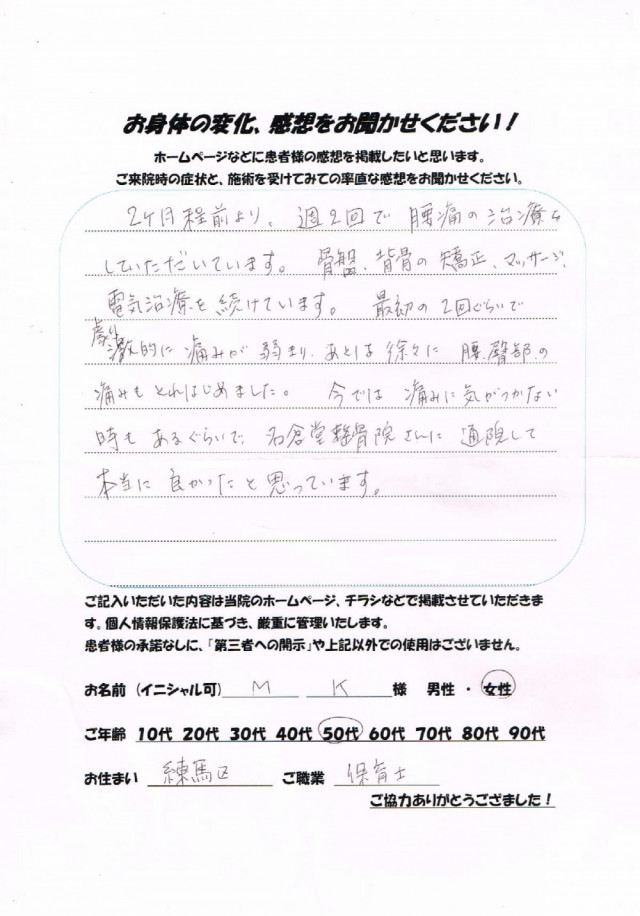 お身体の変化、感想をお聞かせください！
ホームページなどに患者様の感想を掲載したいと思います。
ご来院時の症状と、施術を受けてみての率直な感想をお聞かせください。
2ヶ月程前より、週2回で腰痛の治療を
していただいています。骨盤、背骨の矯正、マッサージ、
電気治療を続けています。最初の2回ぐらいで
劇的に痛みが弱まり、あとは徐々に腰、臀部の
痛みもとれはじめました。今では痛みに気がつかない
時もあるぐらいで、名倉堂整骨院さんに通院して
本当に良かったと思っています。
ご記入いただいた内容は当院のホームページ、チラシなどで掲載させていただきま
す。個人情報保護法に基づき、厳重に管理いたします。
患者様の承諾なしに、「第三者への開示」や上記以外での使用はございません。
お名前（イニシャル可） M K 様 男性・女性
ご年齢 10代 20代 30代 40代 50代 60代 70代 80代 90代
お住まい 練馬区 ご職業 保育士
ご協力ありがとうござました！